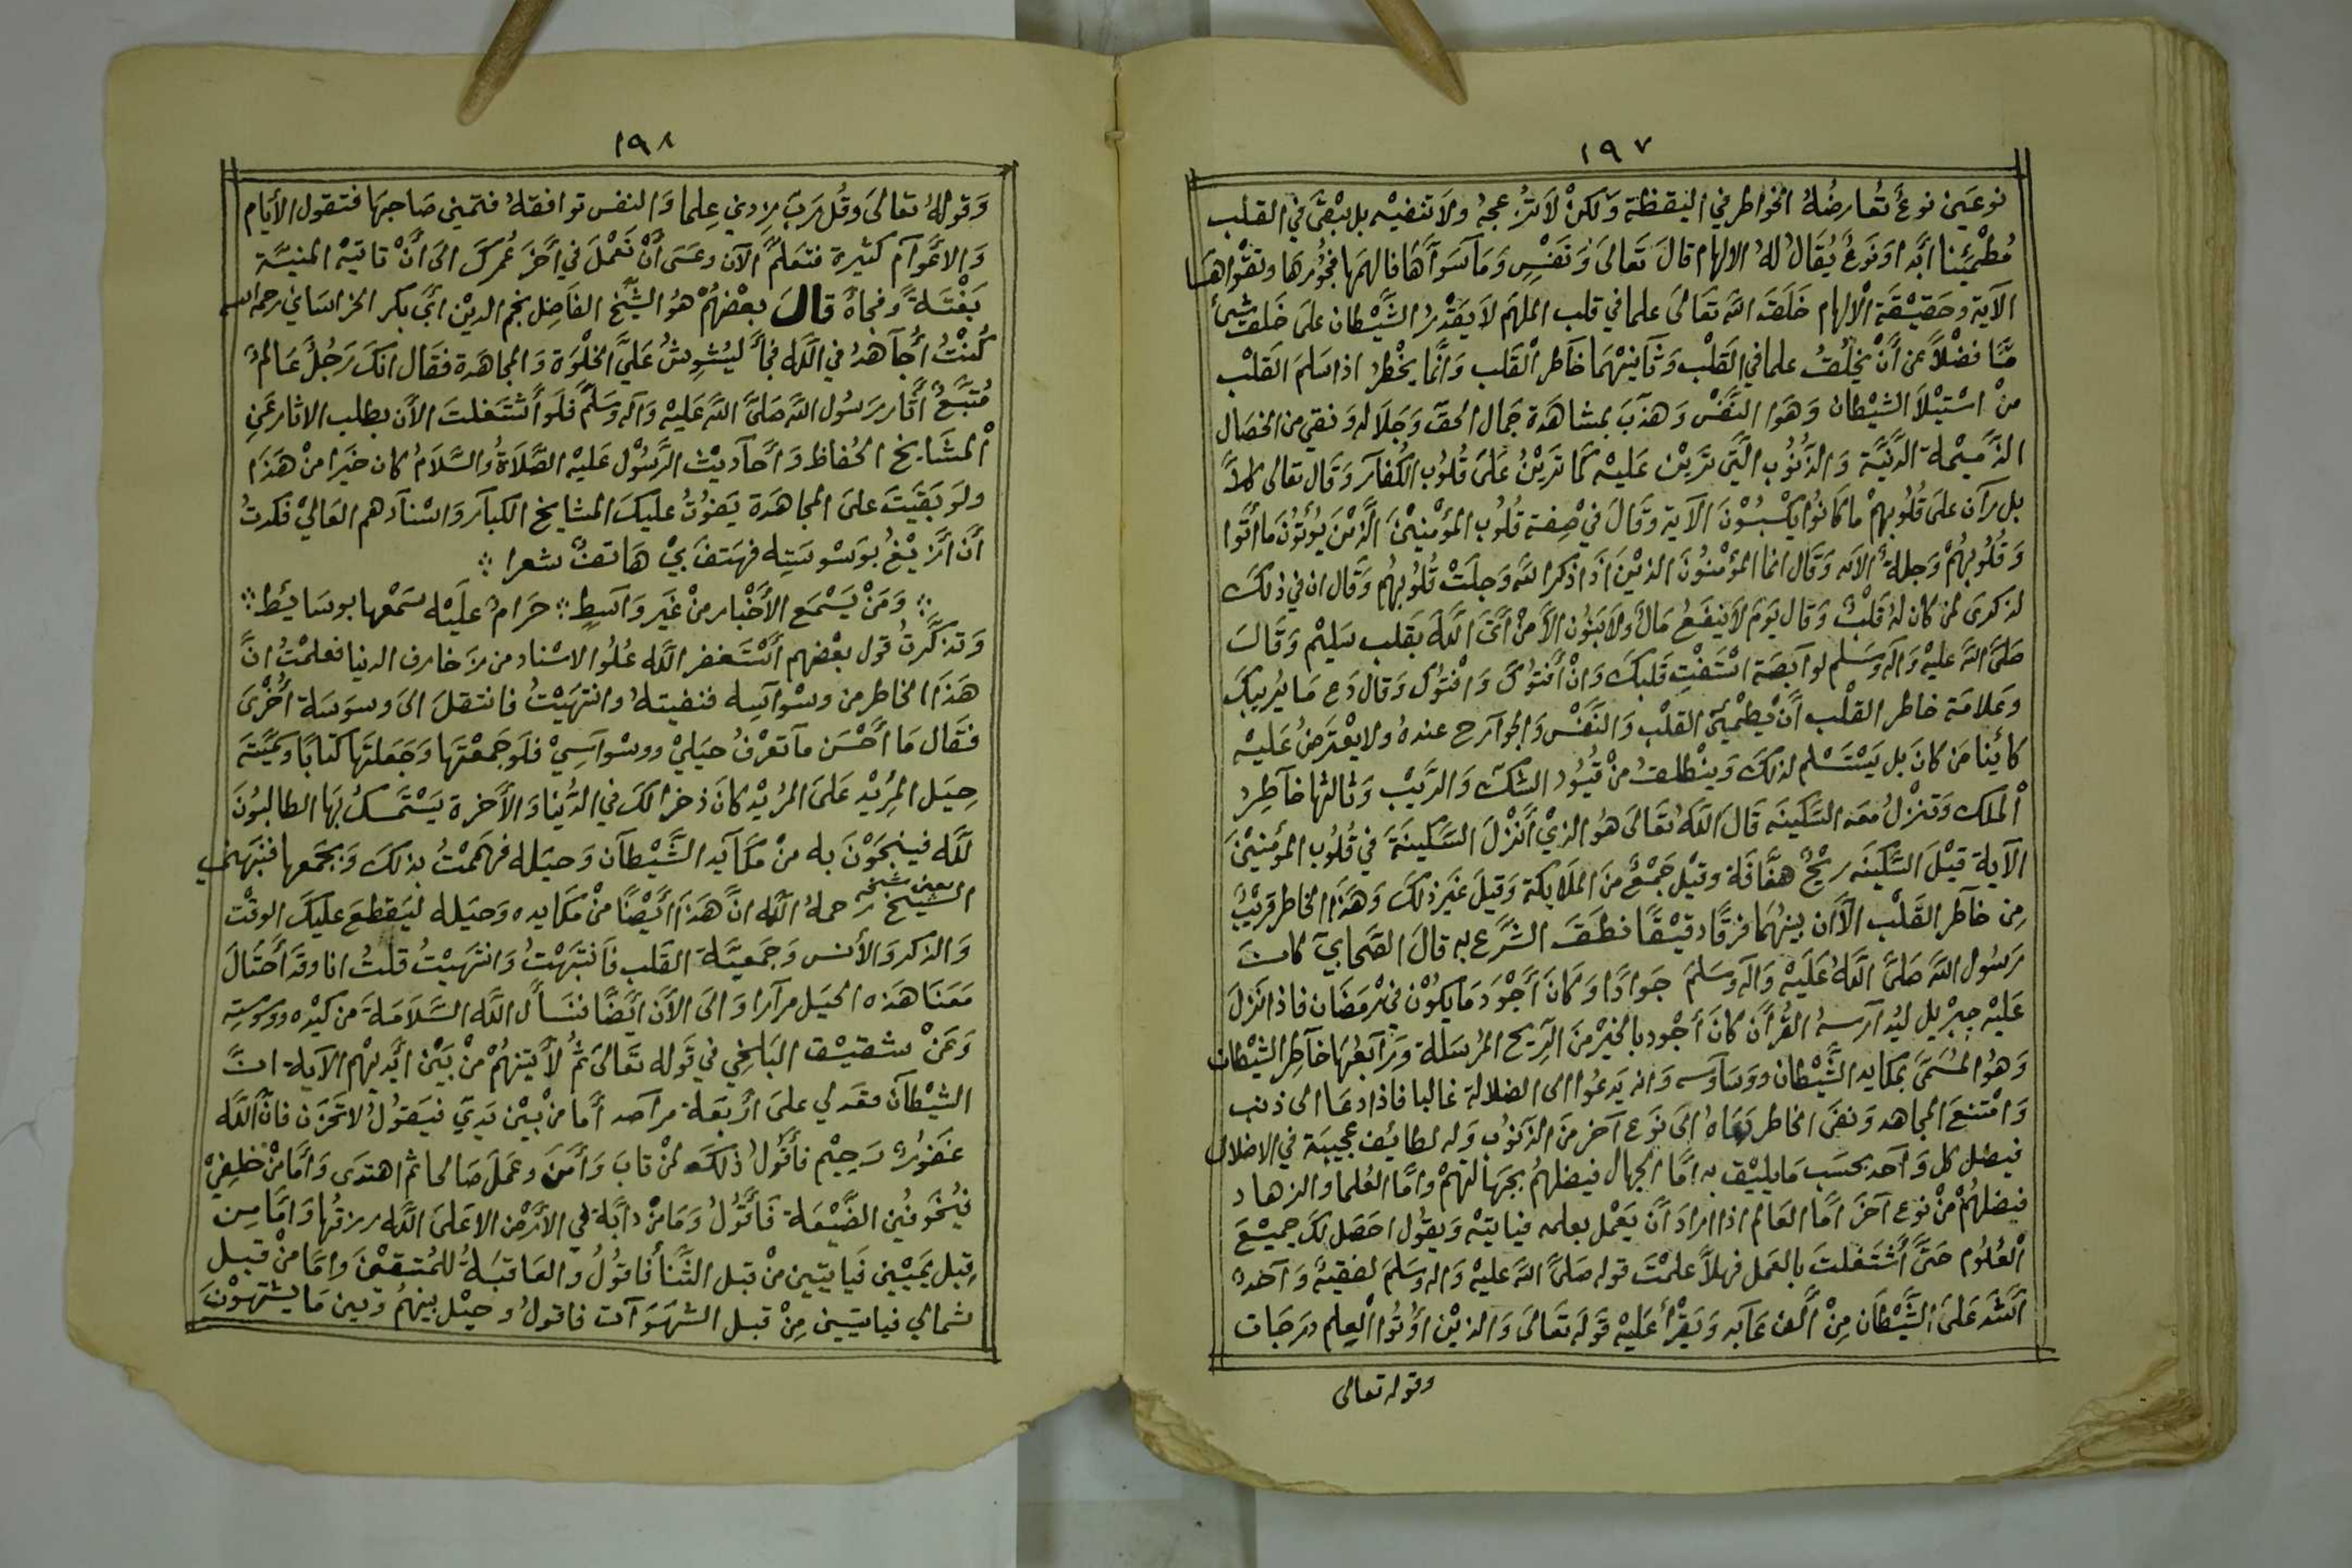 ١٩٧
نوعين نوع تعارضه الخواطر في اليقظة ولكن لا تزعجه ولا تنفيه بل يبقى في القلب
مطمئنا ابدا ونوع يقال له الالهام قال تعالى ونفس وما سواها فالهمها فجورها وتقواها
الآية وحقيقة الالهام خلقه الله تعالى علما في قلب الملهم لا يقدر الشيطان على خلق شئ
منا فضلا عن أن يخلق علما في القلب وثانيتهما خاطر القلب وانما يخطر اذا سلم القلب
من استيلا الشيطان وهوا النفس وهذب بمشاهدة جمال الحق وجلاله ونقي من الخصال
الذميمة الدنية والذنوب التي ترين عليه كما ترين على قلوب الكفار وقال تعالى كلا
بل رآن على قلوبهم ما كانوا يكسبون الآية وقال في صفة قلوب المؤمنين الذين يؤتون ما أتوا
وقلوبهم وجلة الآيه وقال انما المؤمنون الذين اذا ذكر الله وجلت قلوبهم وقال ان في ذلك
لذكرى لمن كان له قلب وقال يوم لا ينفع مال ولا بنون الا من أتى الله بقلب سليم وقال
صلى الله عليه وآله وسلم لوابصة استفت قلبك وان أفتوك وافتوك وقال دع ما يريبك
وعلامة خاطر القلب أن يطمئن القلب والنفس والجوارح عنده ولا يعترض عليه
كائنا من كان بل يستسلم لذلك وينطلق من قيود الشك والريب وثالثها خاطر
الملك وتنزل معه السكينه قال الله تعالى هو الذي أنزل السكينة في قلوب المؤمنين
الآية قيل السكينه ريح هفافة وقيل جمع من الملايكة وقيل غير ذلك وهذا الخاطر قريب
من خاطر القلب الا ان بينهما فرقا دقيقا نطق الشرع به قال الصحابي كان
رسول الله صلى الله عليه وآله وسلم جوادا وكان أجود ما يكون في رمضان فاذا نزل
عليه جبريل ليدارسه القرآن كان أجود بالخير من الريح المرسلة ورابعها خاطر الشيطان
وهو المسمى بمكايد الشيطان ووساوسه وانه يدعوا الى الضلالة غالبا فاذا دعا الى ذنب
وامتنع المجاهد ونفى الخاطر دعاه الى نوع آخر من الذنوب وله لطائف عجيبة في الاضلال
فيضل كل واحد بحسب ما يليق به اما الجهال فيضلهم بجهالتهم واما العلما والزهاد
فيضلهم من نوع آخر اما العالم اذا اراد أن يعمل بعلمه فيأتيه ويقول احصل لك جميع
العلوم حتى أشتغلت بالعمل فهلا علمت قوله صلى الله عليه واله وسلم لفقيه واحد
اشد على الشيطان من ألف عابد ويقرأ عليه قوله تعالى والذين أوتوا العلم درجات
وقوله تعالى
١٩٨
وقوله تعالى وقل رب زدني علما والنفس توافقه فتميني صاحبها فتقول الأيام
والاعوام كثيرة فتعلم الآن وعسى أن تعمل في آخر عمرك الى أن تاتيه المنية
بغتة وفجاة قال بعضهم هو الشيخ الفاضل نجم الدين ابي بكر الخراساني رحمه الله
كنت أجاهد في الله فجأ ليشوش علي الخلوة والمجاهدة فقال انك رجل عالم
متبع آثار رسول الله صلى الله عليه وآله وسلم فلو أشتغلت الآن بطلب الاثار عن
المشايخ الحفاظ وأحاديث الرسول عليه الصلاة والسلام كان خيرا من هذا
ولو بقيت على المجاهدة يفوت عليك المشايخ الكبار واسنادهم العالي فكدت
أن أزيغ بوسوسته فهتف بي هاتف شعرا
ومن يسمع الأخبار من غير واسط حرام عليه سمعها بوسائط
وتذكرت قول بعضهم أستغفر الله علو الاسناد من زخارف الدنيا فعلمت ان
هذا الخاطر من وسواسه فنفيته وانتهيت فانتقل الى وسوسة أخرى
فقال ما أحسن ما تعرف حيلي ووسواسي فلو جمعتها وجعلتها كتابا وسميته
حيل المريد على المريد كان ذخرا لك في الدنيا والآخرة يستمسك بها الطالبون
لله فينجون به من مكايد الشيطان وحيله فهممت بذلك وبجمعها فنبهني
يعني شيخه
الشيخ رحمه الله ان هذا أيضا من مكايده وحيله ليقطع عليك الوقت
والذكر والأنس وجمعية القلب فانتبهت وانتهيت قلت انا وقد أحتال
معنا هذه الحيل مرارا والى الآن أيضا فنسأل الله السلامة من كيده ووسوسته
وعن شقيق البلخي في قوله تعالى ثم لآتينهم من بين أيديهم الآية ان
الشيطان مقعد لي على أربعة مراصد أما من بين يدي فيقول لا تحزن فان الله
غفور رحيم فأقول ذلك لمن تاب وآمن وعمل صالحا ثم اهتدى وأما من خلفي
فيخوفني الضيعة فأقول وما من دابة في الأرض الا على الله رزقها واما من
قبل يميني فيأتيني من قبل الثنأ فاقول والعاقبة للمتقين واما من قبل
شمالي فياتيني من قبل الشهوات فاقول وحيل بينهم وبين ما يشتهون